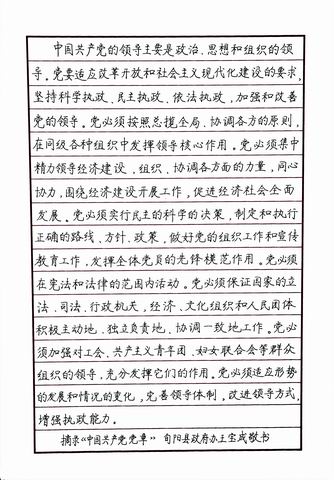 中国共产党的领导主要是政治、思想和组织的领
导。党要适应改革开放和社会主义现代化建设的要求,
坚持科学执政、民主执政、依法执政,加强和改善
党的领导。党必须按照总揽全局、协调各方的原则,
在同级各种组织中发挥领导核心作用。党必须集中
精力领导经济建设、组织、协调各方面的力量,同心
协力,围绕经济建设开展工作,促进经济社会全面
发展。党必须实行民主的科学的决策,制定和执行
正确的路线、方针、政策,做好党的组织工作和宣传
教育工作,发挥全体党员的先锋模范作用。党必须
在宪法和法律的范围内活动。党必须保证国家的立
法、司法、行政机关,经济、文化组织和人民团体
积极主动地、独立负责地、协调一致地工作。党必
须加强对工会、共产主义青年团、妇女联合会等群众
组织的领导,充分发挥它们的作用。党必须适应形势
的发展和情况的变化,完善领导体制,改进领导方式,
增强执政能力。
摘录“中国共产党党章” 旬阳县政府办王宝成敬书